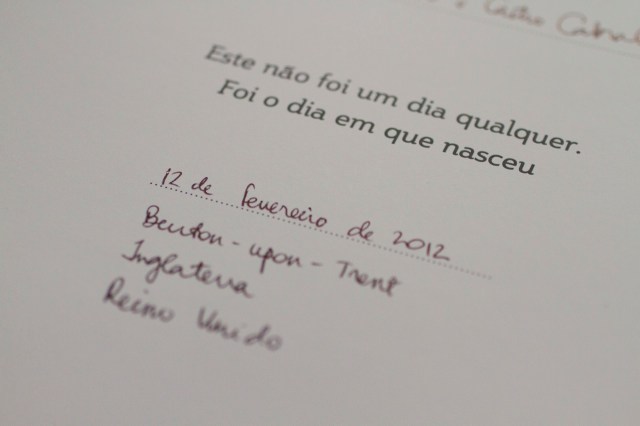 Castro Cabral
Este não foi um dia qualquer.
Foi o dia em que nasceu
12 de fevereiro de 2012
Burton-upon-Trent
Inglaterra
Reino Unido